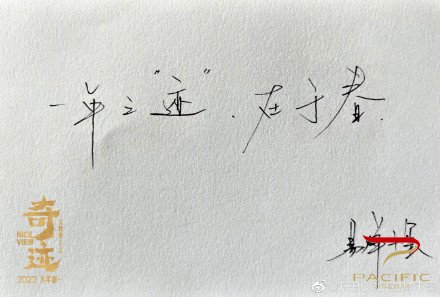 一年之"迹"，在于春.
易烊千玺
奇迹
NICE
VIEW
2022 大年初一
PACIFIC